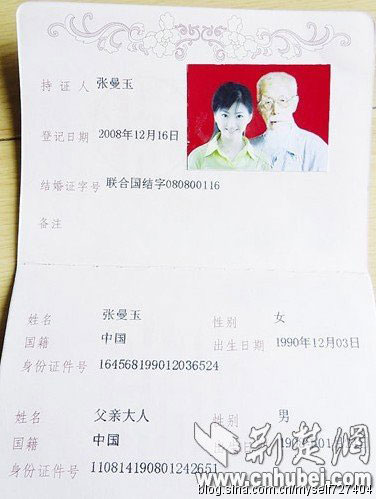 持证人 张曼玉
登记日期 2008年12月16日
结婚证字号 联合国结字080800116
备注
姓名 张曼玉 性别 女
国籍 中国 出生日期 1990年12月03日
身份证件号 164568199012036524
姓名 父亲大人 性别 男
国籍 中国
身份证件号 110814190801242651
荆楚网
www.cnhubei.com
blog.sina.com.cn/myself727404